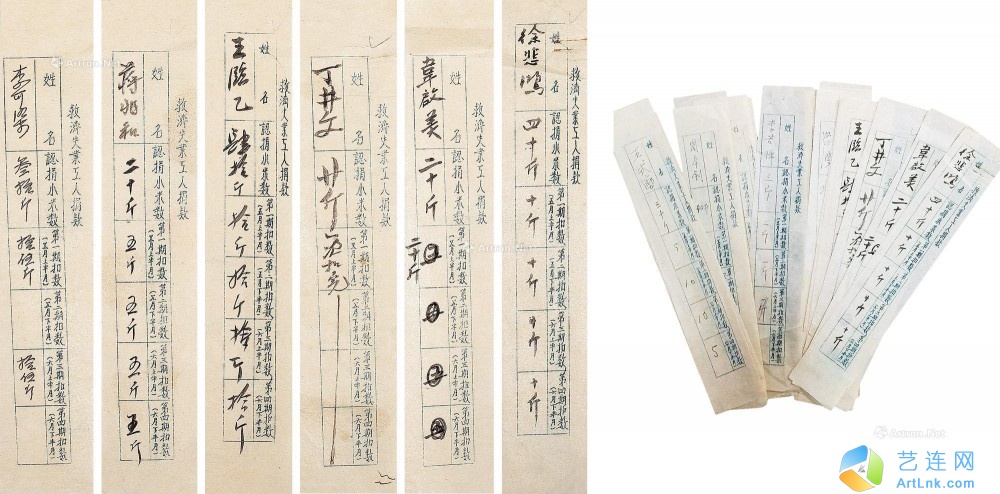 救濟失業工人捐款
姓名 認捐小米數 第一期扣數(五月上半月) 第二期扣數(五月下半月) 第三期扣數(六月上半月) 第四期扣數(六月下半月)
徐悲鴻 四十斤 十斤 十斤 十斤 十斤
救濟失業工人捐款
姓名 認捐小米數 第一期扣數(五月上半月) 第二期扣數(五月下半月) 第三期扣數(六月上半月) 第四期扣數(六月下半月)
韋啟美 二十斤 二十斤
救濟失業工人捐款
姓名 認捐小米數 第一期扣數(五月上半月) 第二期扣數(五月下半月) 第三期扣數(六月上半月) 第四期扣數(六月下半月)
丁井文 廿斤 一次扣完
救濟失業工人捐款
姓名 認捐小米數 第一期扣數(五月上半月) 第二期扣數(五月下半月) 第三期扣數(六月上半月) 第四期扣數(六月下半月)
王臨乙 肆拾斤 拾斤 拾斤 拾斤 拾斤
救濟失業工人捐款
姓名 認捐小米數 第一期扣數(五月上半月) 第二期扣數(五月下半月) 第三期扣數(六月上半月) 第四期扣數(六月下半月)
蔣兆和 二十斤 五斤 五斤 五斤 五斤
救濟失業工人捐款
姓名 認捐小米數 第一期扣數(五月上半月) 第二期扣數(五月下半月) 第三期扣數(六月上半月) 第四期扣數(六月下半月)
李可染 叁拾斤 拾伍斤 拾伍斤
徐悲鴻 四十斤 十斤
韋啟美 二十斤
丁井文 廿斤
王臨乙
Artron.Net
艺连网
ArtLnk.com